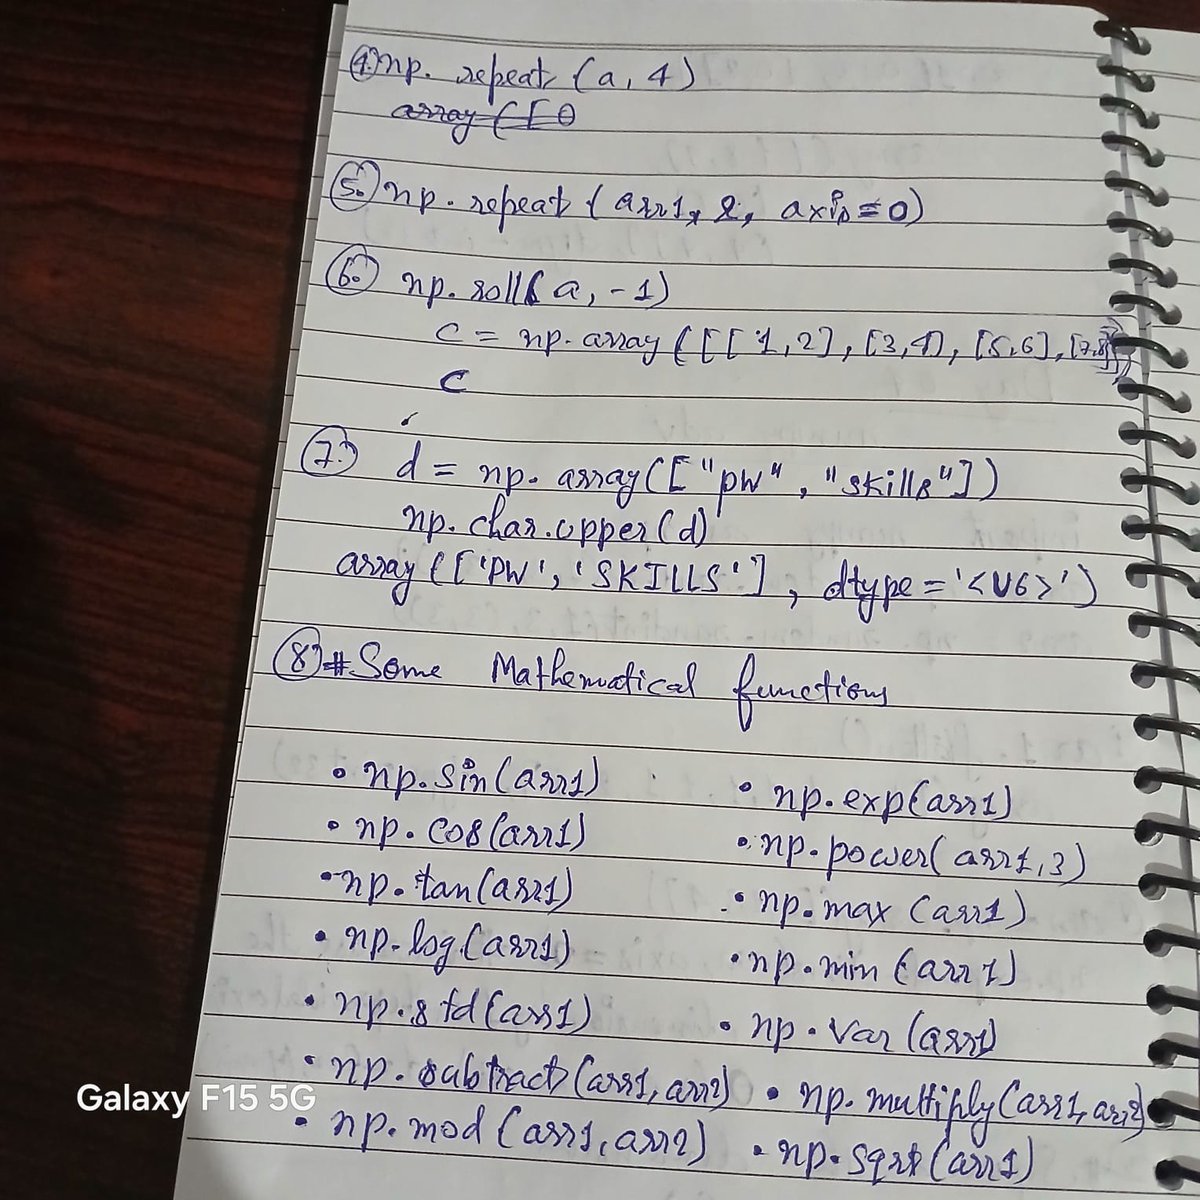 4. np. repeat (a, 4)
array ([0
5. np. repeat (arr1, 2, axis=0)
6. np. roll( a, -1)
c = np. array ([[ 1,2], [3,4], [5,6], [7,8]])
c
7. d = np. array(["pw", "skills"])
np.char.upper(d)
array (['PW', 'SKILLS'], dtype = '<U6>')
8 # Some Mathematical functions
• np.sin(arr1) • np.exp(arr1)
• np. cos(arr1) • np.power( arr1,3)
• np. tan(arr1) • np.max (arr1)
• np. log(arr1) • np.min (arr1)
• np.std(arr1) • np.var (arr1)
• np. subtract (arr1, arr2) • np. multiply(arr1, arr2)
• np. mod (arr1, arr2) • np. sqrt (arr1)
Galaxy F15 5G